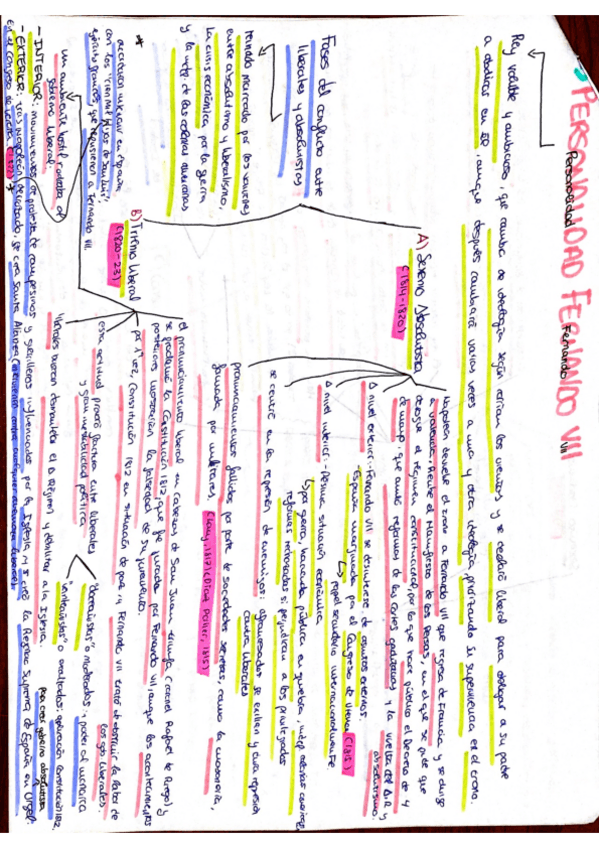 PERSONALIDAD FERNANDO VII
Personalidad
Fernando
VII
Rey voluble y ambicioso, que cambia de ideología según varían los vientos y se mostró liberal para obligar a su padre
a abdicar en él, aunque después cambiará varias veces a una y otra ideología priorizando su supervivencia en el trono.
Fases del conflicto entre
liberales y absolutistas
reinado marcado por los vaivenes
entre absolutismo y liberalismo,
la crisis económica por la guerra
y la indp. de las colonias americanas
A) Sexenio Absolutista
(1814-1820)
Napoleón devuelve el trono a Fernando VII que regresa de Francia y se dirige
a Valencia. Recibe el Manifiesto de los Persas, en el que se pide que
derogue el régimen constitucional, por lo que hace público el Decreto de 4
de mayo, que anula reformas de las Cortes gaditanas y la vuelta del A.R y
absolutismo.
A nivel exterior: Fernando VII se desentiende de asuntos externos.
España marginada por el Congreso de Viena (1815)
papel secundario internacionalmente
A nivel interior: Pésima situación económica
por guerra, hacienda pública en quiebra, indp
reformas rechazadas si perjudican a los privilegiados
se centró en la represión de enemigos: afrancesados se exilian y dura represión
contra liberales
pronunciamientos fallidos por parte de sociedades secretas, como la masonería,
formada por militares. (Lacy, 1817), (Díaz Porlier, 1815)
B) Trienio liberal
(1820-23)
el pronunciamiento liberal en Cabezas de San Juan triunfa (coronel Rafael de Riego) y
se proclamó la Constitución 1812, que fue jurada por Fernando VII, aunque los acontecimientos
posteriores mostrarían la falsedad de su juramento.
por 1ª vez, Constitución 1812 en situación de paz y Fernando VII trató de obstruir la labor de
los gob liberales.
esta actitud provocó fractura entre liberales
y gran inestabilidad política
"doceañistas" o moderados: poder al monarca
"veinteañistas" o exaltados: aplicación constitución 1812.
liberales buscan desmantelar el A Régimen y debilitar a la Iglesia.
un ambiente hostil rodeaba al
gobierno liberal:
- INTERIOR: movimientos de protesta de campesinos y guerrilleros influenciados por la Iglesia y se creó la Regencia Suprema de España en Urgel:
por crear gobierno absolutista
- EXTERIOR: tras Napoleón derrotado, se crea Santa Alianza
en el Congreso de Verona (1822) *
* acordaron intervenir en España
con los "cien mil hijos de San Luis"
ejército francés, que repusieron a Fernando VII.